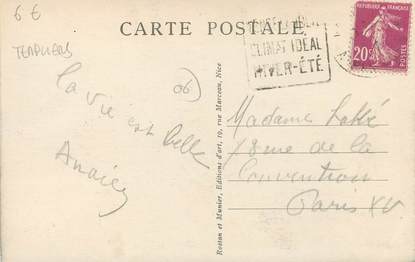 6 €
TEMPLIERS
CARTE POSTALE
CLIMAT IDEAL
HIVER-ÉTÉ
REPUBLIQUE FRANÇAISE
20c
06
la vie est belle
Rostan et Munier, Editions d'art, 19, rue Marceau, Nice
Madame
78 rue de la
Convention
Paris XV